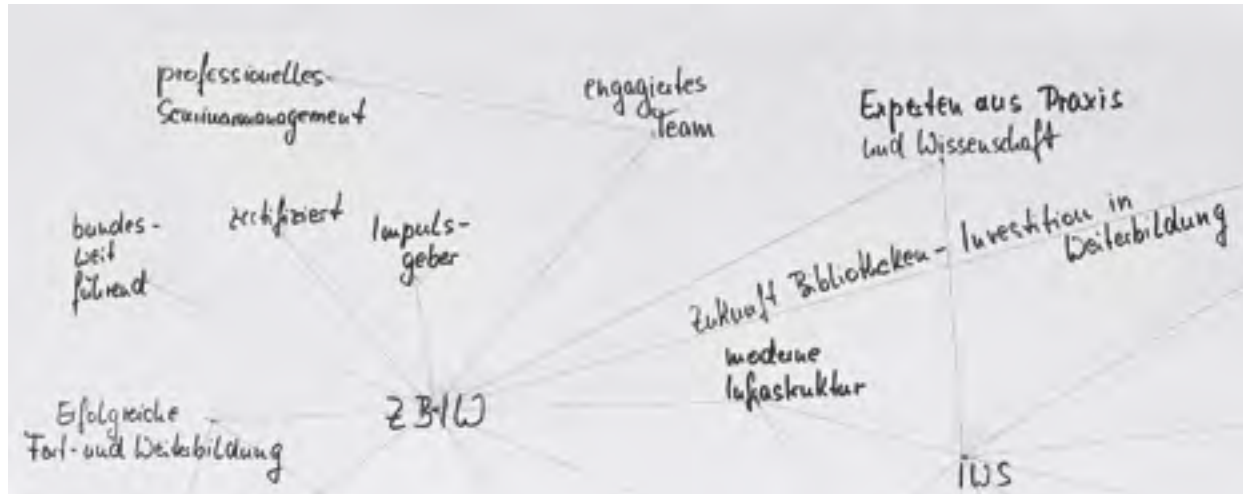 professionelles
Seminarmanagement
engagiertes
Team
Experten aus Praxis
und Wissenschaft
bundes-
weit
führend
zertifiziert
Impuls-
geber
Zukunft Bibliotheken - Investition in
Weiterbildung
moderne
Infrastruktur
Erfolgreiche
Fort- und Weiterbildung
ZBIW
IWS